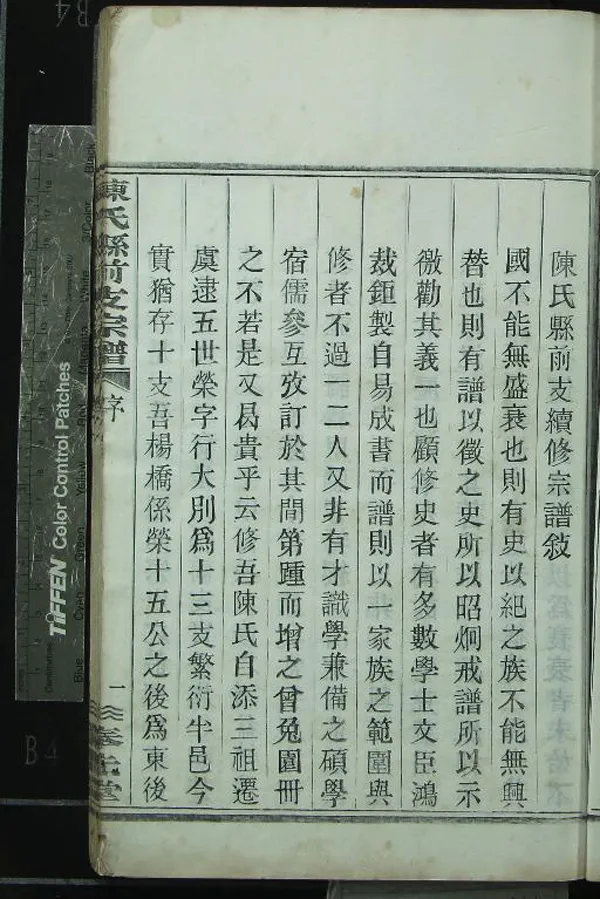 陳氏縣前支續修宗譜敍
國不能無盛衰也則有史以紀之族不能無興
替也則有譜以徵之史所以昭炯戒譜所以示
徵勸其義一也顧修史者有多數學士文臣鴻
裁鉅製自易成書而譜則以一家族之範圍與
修者不過一二人又非有才識學兼備之碩學
宿儒參互攷訂於其間第踵而增之曾兔園冊
之不若是又曷貴乎云修吾陳氏自添三祖遷
虞逮五世榮字行大別爲十三支繁衍半邑今
實猶存十支吾楊橋係榮十五公之後爲東後
陳氏縣前支宗譜
序
一
TIFFEN Color Control Patches
B4
B4